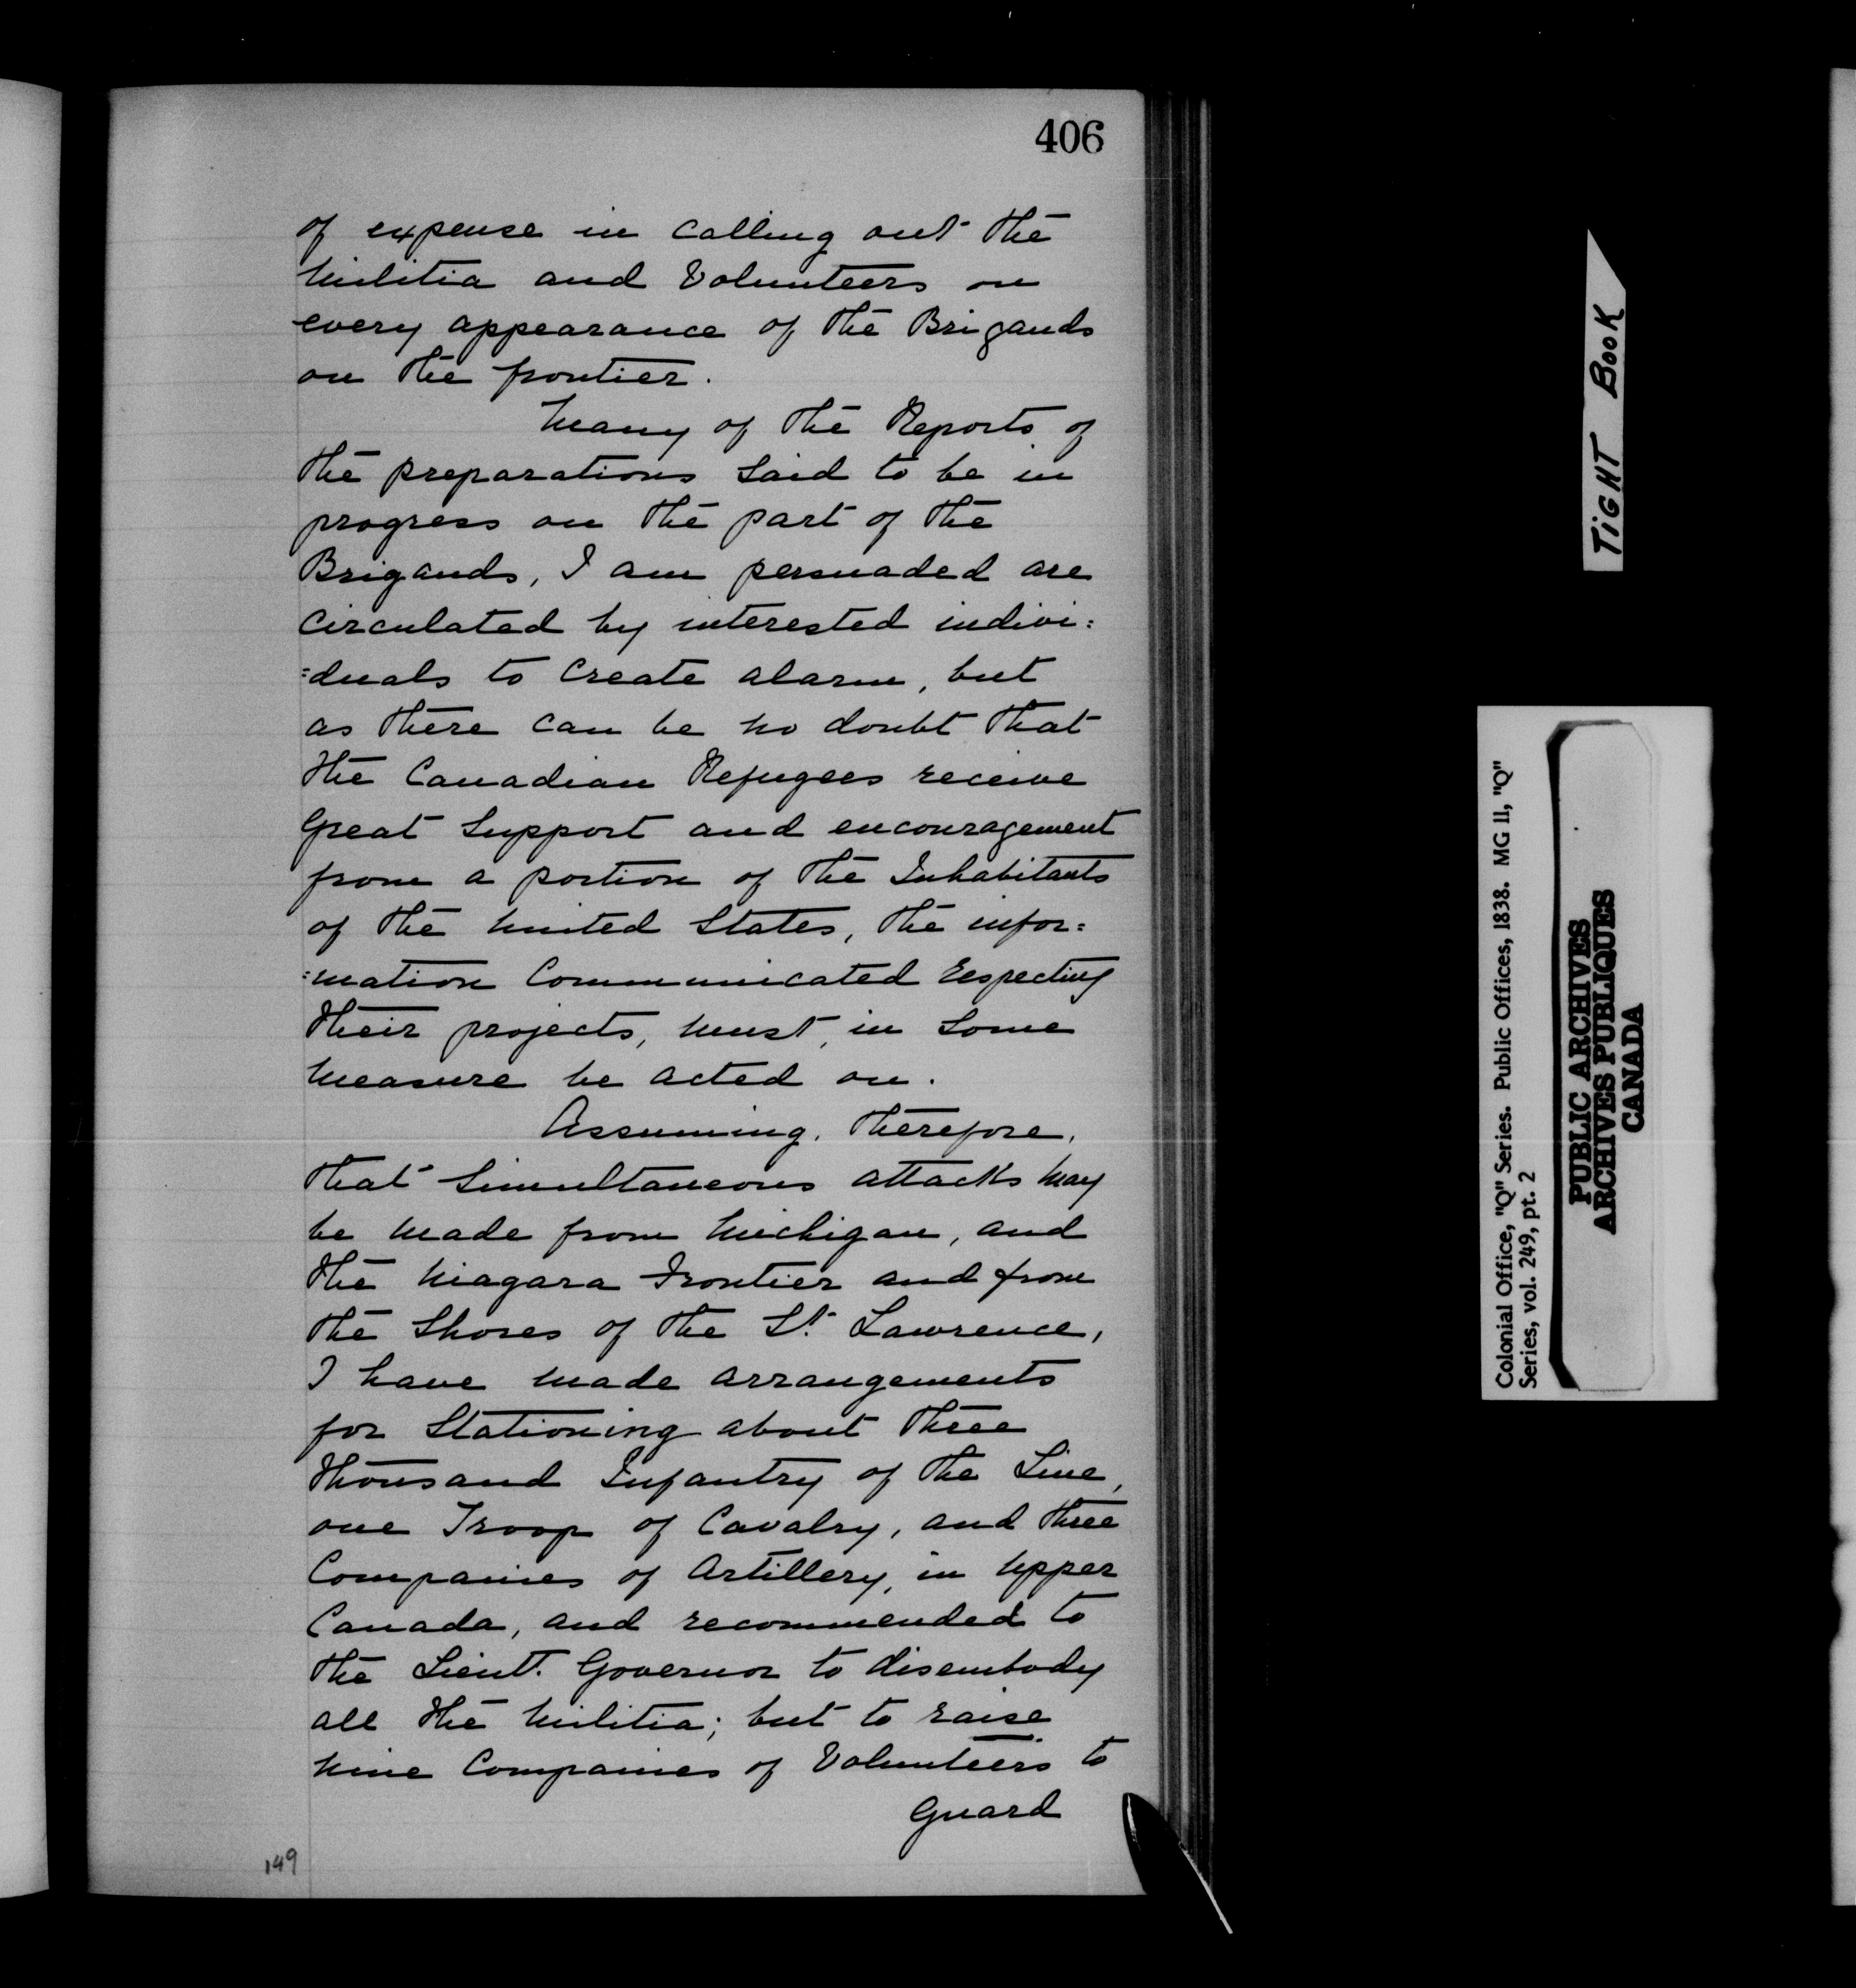 406
of expense in calling out the
Militia and Volunteers on
every appearance of the Brigands
on the frontier.
Many of the Reports of
the preparations said to be in
progress on the part of the
Brigands, I am persuaded are
circulated by interested indivi:
:duals to create alarm, but
as there can be no doubt that
the Canadian Refugees receive
Great Support and encouragement
from a portion of the Inhabitants
of the United States, the infor:
:mation Communicated respecting
their projects, must, in some
measure be acted on.
Assuming, therefore,
that Simultaneous attacks may
be made from Michigan, and
the Niagara Frontier and from
the Shores of the St. Lawrence,
I have made arrangements
for Stationing about three
thousand Infantry of the Line,
one Troop of Cavalry, and three
Companies of Artillery, in Upper
Canada, and recommended to
the Lieut. Governor to disembody
all the Militia; but to raise
nine Companies of Volunteers to
Guard
149
TIGHT BOOK
Colonial Office, "Q" Series. Public Offices, 1838. MG 11, "Q"
Series, vol. 249, pt. 2
PUBLIC ARCHIVES
ARCHIVES PUBLIQUES
CANADA